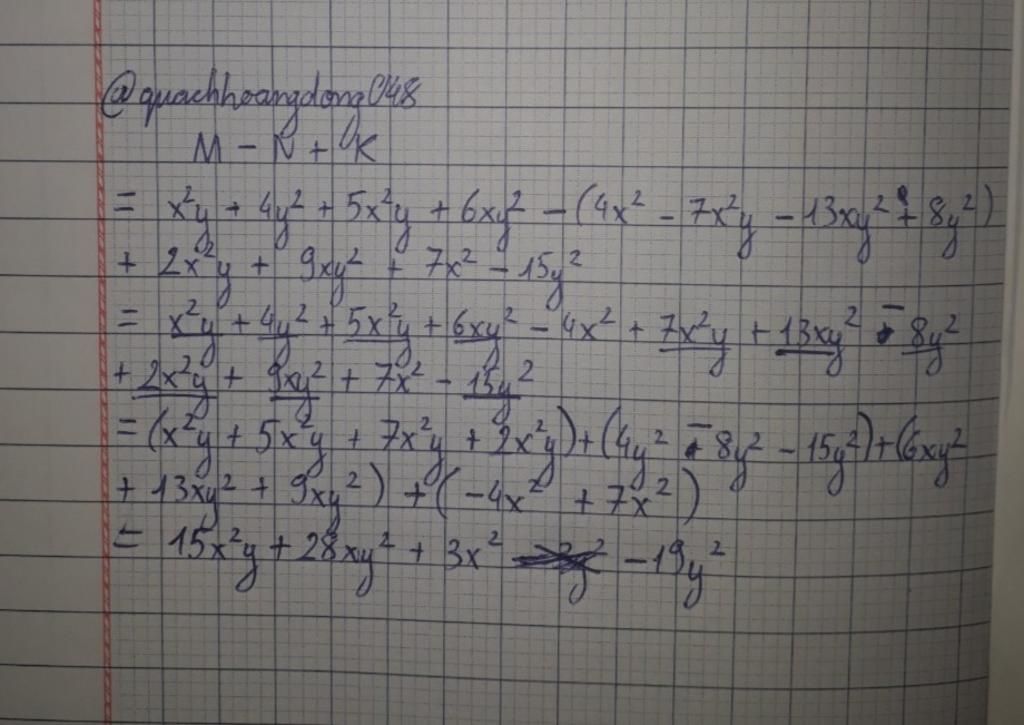 @quachhoangdong048
M - N + K
= x²y + 4y² + 5x²y + 6xy² - (4x² - 7x²y - 13xy² + 8y²)
+ 2x²y + 9xy² + 7x² - 15y²
= x²y + 4y² + 5x²y + 6xy² - 4x² + 7x²y + 13xy² - 8y²
+ 2x²y + 9xy² + 7x² - 15y²
= (x²y + 5x²y + 7x²y + 2x²y) + (4y² - 8y² - 15y²) + (6xy²
+ 13xy² + 9xy²) + (-4x² + 7x²)
= 15x²y + 28xy² + 3x² - 19y²